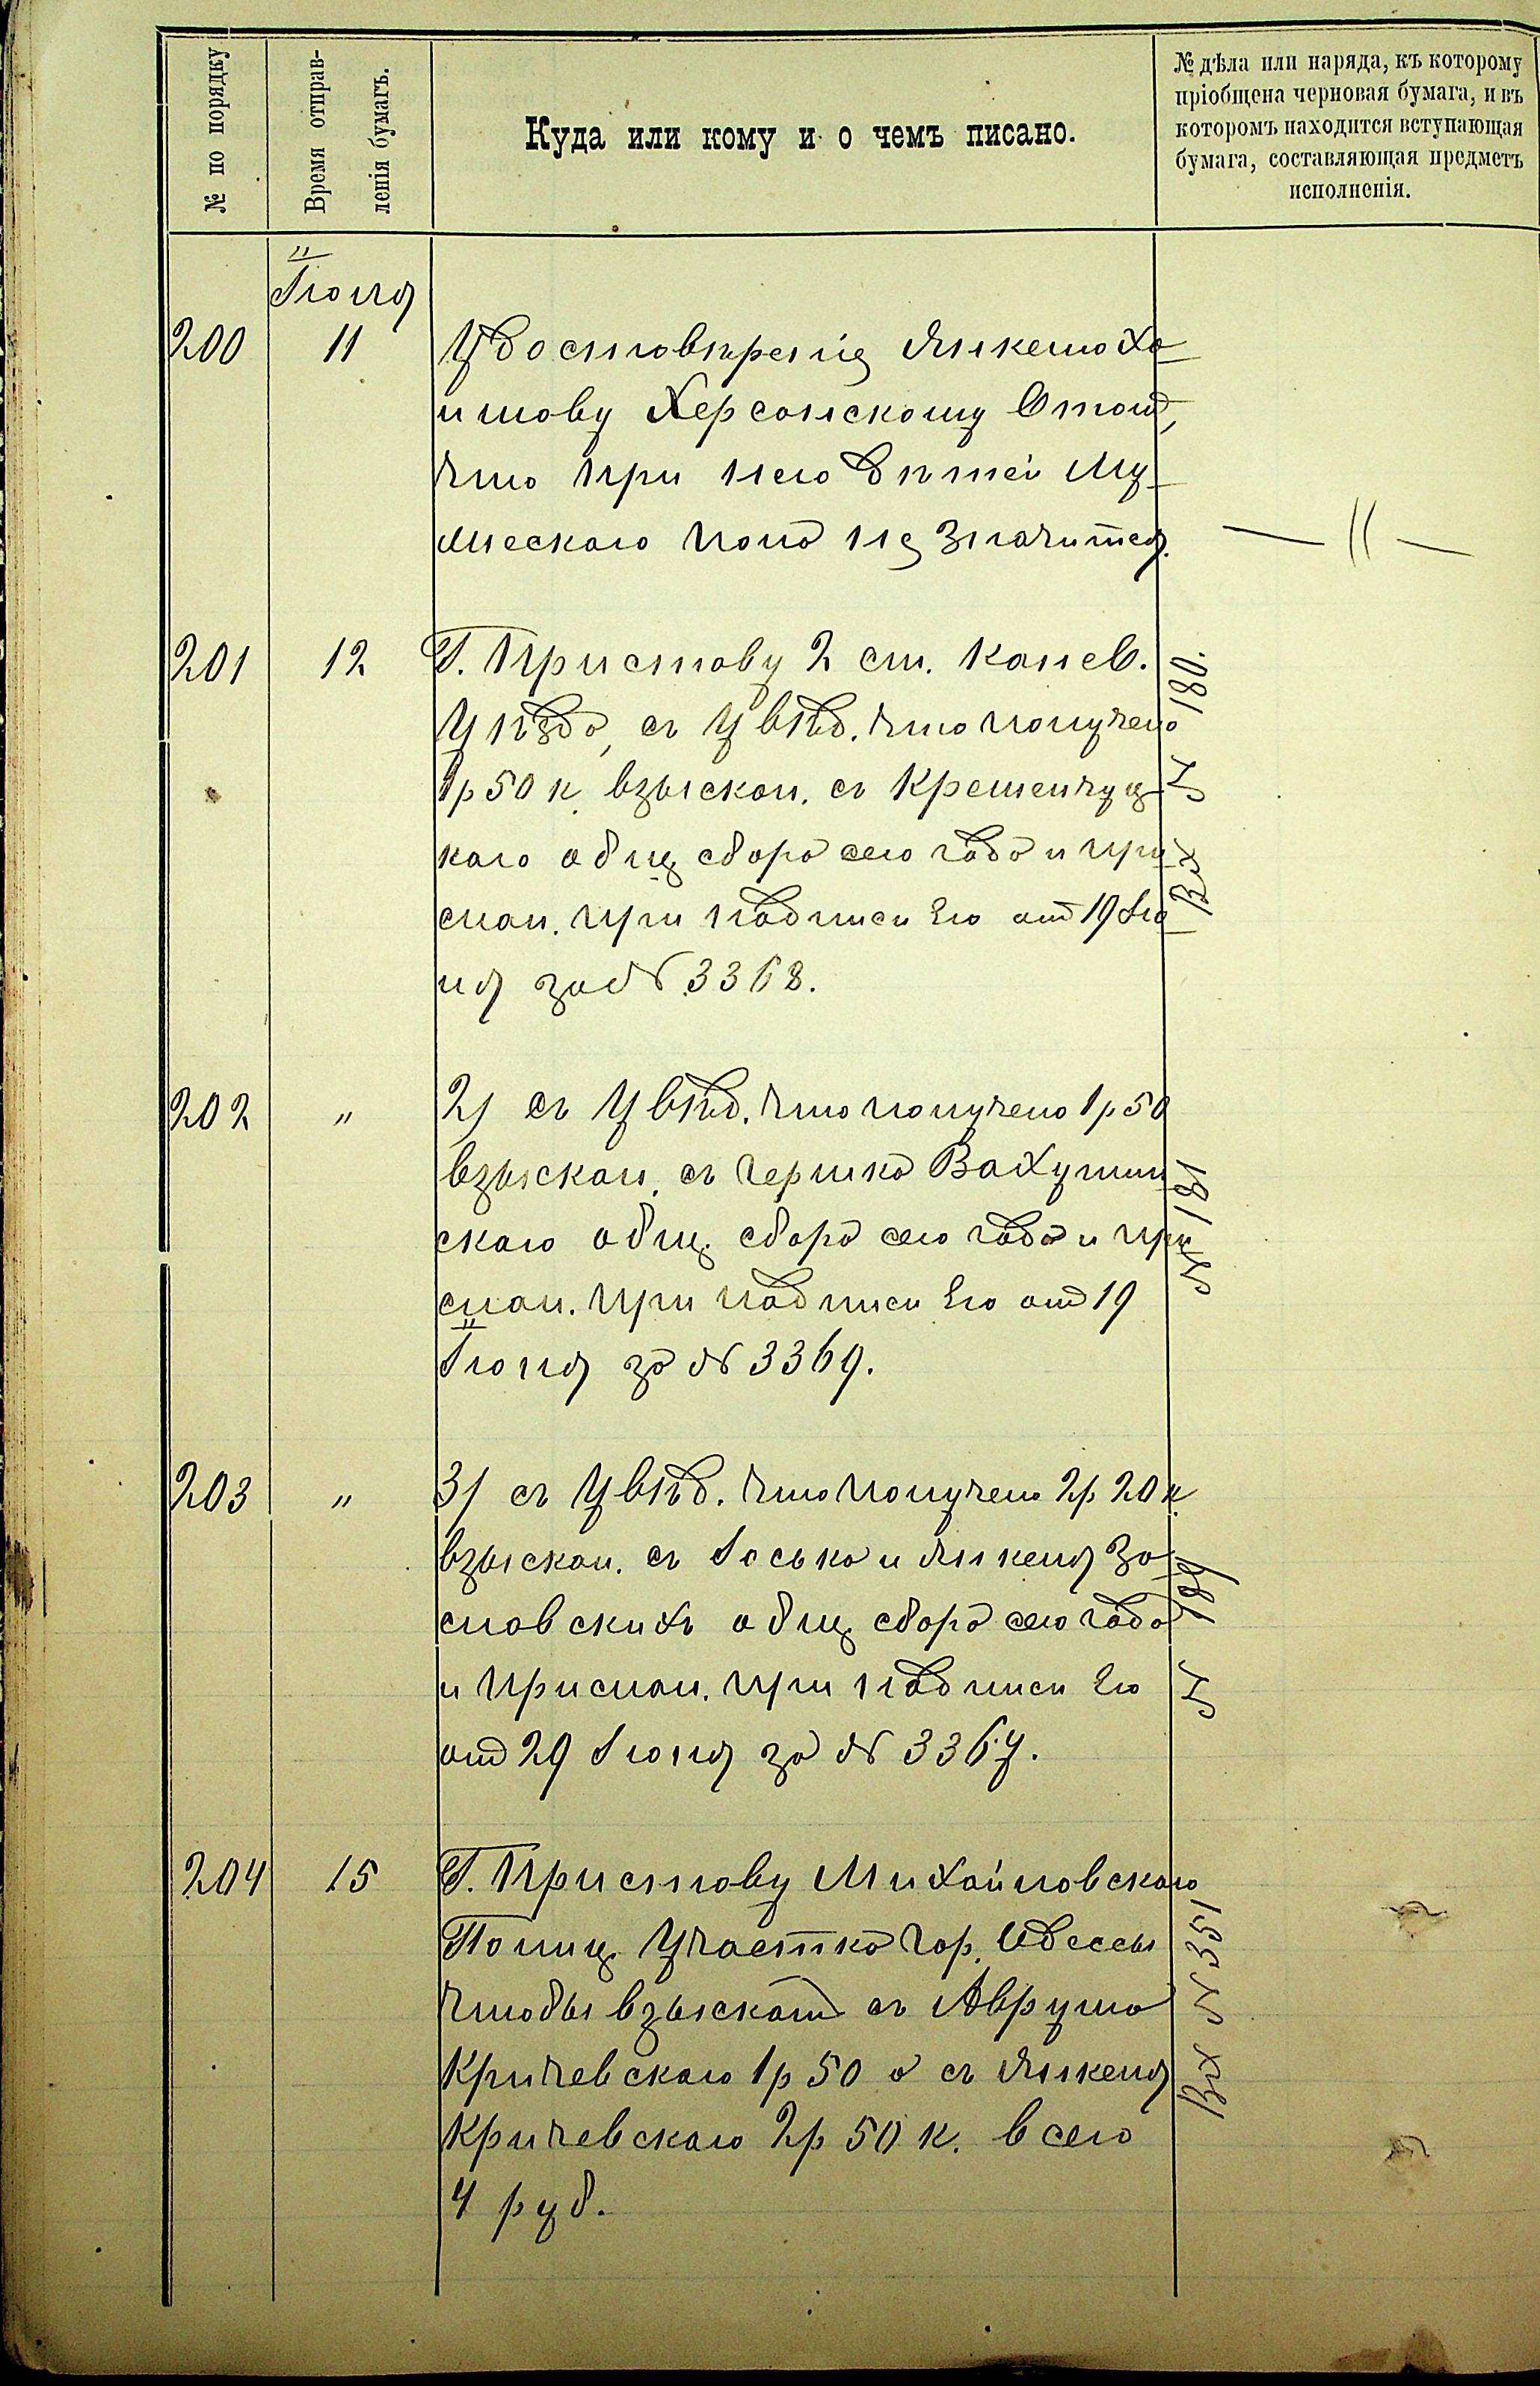 № по порядку
Время отправ-
ленія бумагъ.
Куда или кому и о чемъ писано.
№ дѣла или наряда, къ которому
пріобщена черновая бумага, и въ
которомъ находится вступающая
бумага, составляющая предметъ
исполненія.
Іюля
200 11 Удостовѣреніе Янкелю Ха
имову Херсонскому в томъ,
что при него дѣтей му-
жескаго пола не значится. — || —
201 12 Г. Приставу 2 ст. Канев.
Уѣзда, съ увѣд. что получено
1 р 50 к взыскан. съ Кременчуц
каго общ сбора сего года и при
слан. при надписи Его отъ 19 Ію
ля за № 3368.
Вх № 180.
202 " 2) съ увѣд. что получено 1 р 50
взыскан. съ Гершка Вахутин
скаго общ. сбора сего года и при
слан. при надписи Его отъ 19
Іюля за № 3369.
№ 181
203 " 3) съ увѣд. что получено 2 р 20 к
взыскан. съ Іоська и Янкеля За
славскихъ общ сбора сего года
и прислан. при надписи Его
отъ 29 Іюля за № 3367.
№ 189
204 15 Г. Приставу Михайловскаго
Полиц. Участка гор. Одессы
чтобы взыскать съ Аврума
Кричевскаго 1 р 50 а съ Янкеля
Кричевскаго 2 р 50 к. всего
4 руб.
Вх № 351